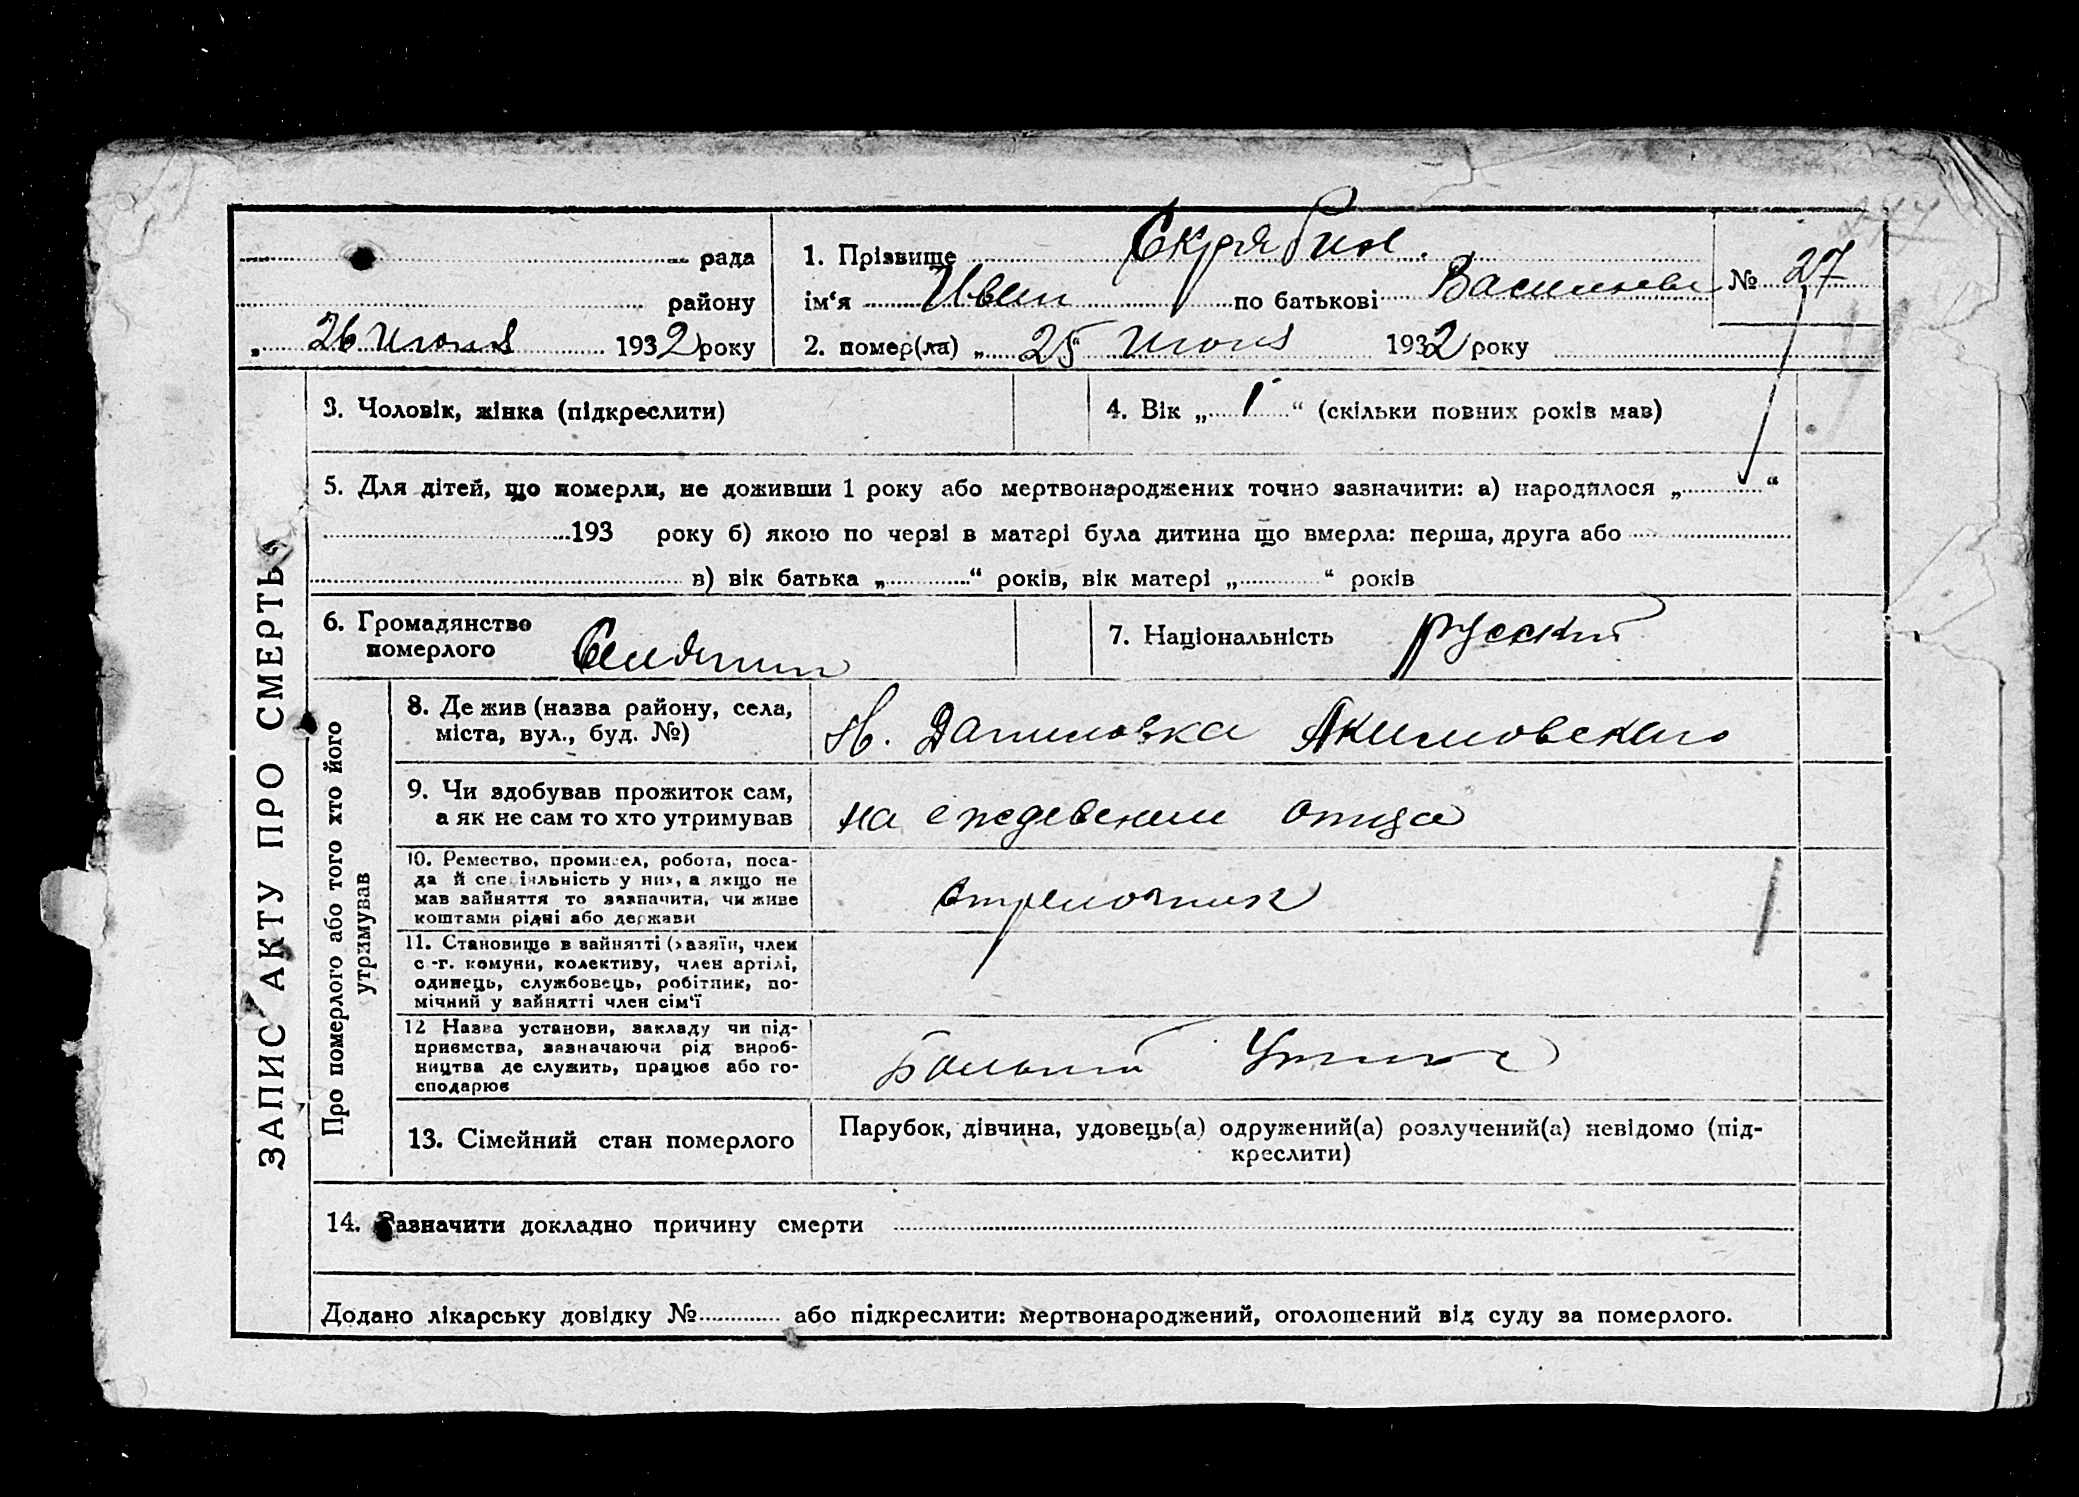 рада
району
„ 26 Июня 1932 року
1. Прізвище Скрябин.
ім‘я Иван по батькові Васильев
№ 27
2. помер(ла) „ 25 Июня 1932 року
ЗАПИС АКТУ ПРО СМЕРТЬ
3. Чоловік, жінка (підкреслити)
4. Вік „ 1 “ (скільки повних років мав)
5. Для дітей, що померли, не доживши 1 року або мертвонароджених точно зазначити: а) народилося „ “
193 року б) якою по черзі в матері була дитина що вмерла: перша, друга або
в) вік батька „ “ років, вік матері „ “ років
6. Громадянство
померлого
7. Національність русский
Про померлого або того хто його
утримував
8. Де жив (назва району, села,
міста, вул., буд. №)
Н. Даниловка Акимовского
9. Чи здобував прожиток сам,
а як не сам то хто утримував
на еждевении отца
10. Ремество, промисел, робота, поса-
да й спеціяльність у них, а якщо не
мав зайняття то зазначити, чи живе
коштами рідні або держави
Стрелочник
11. Становище в зайнятті (хазяїн, член
с.-г. комуни, колективу, член артілі,
одинець, службовець, робітник, по-
мічний у зайнятті член сім‘ї
12 Назва установи, закладу чи під-
приємства, зазначаючи рід вироб-
ництва де служить, працює або го-
сподарює
13. Сімейний стан померлого
Парубок, дівчина, удовець(а) одружений(а) розлучений(а) невідомо (під-
креслити)
14. Зазначити докладно причину смерти
Додано лікарську довідку № або підкреслити: мертвонароджений, оголошений від суду за померлого.